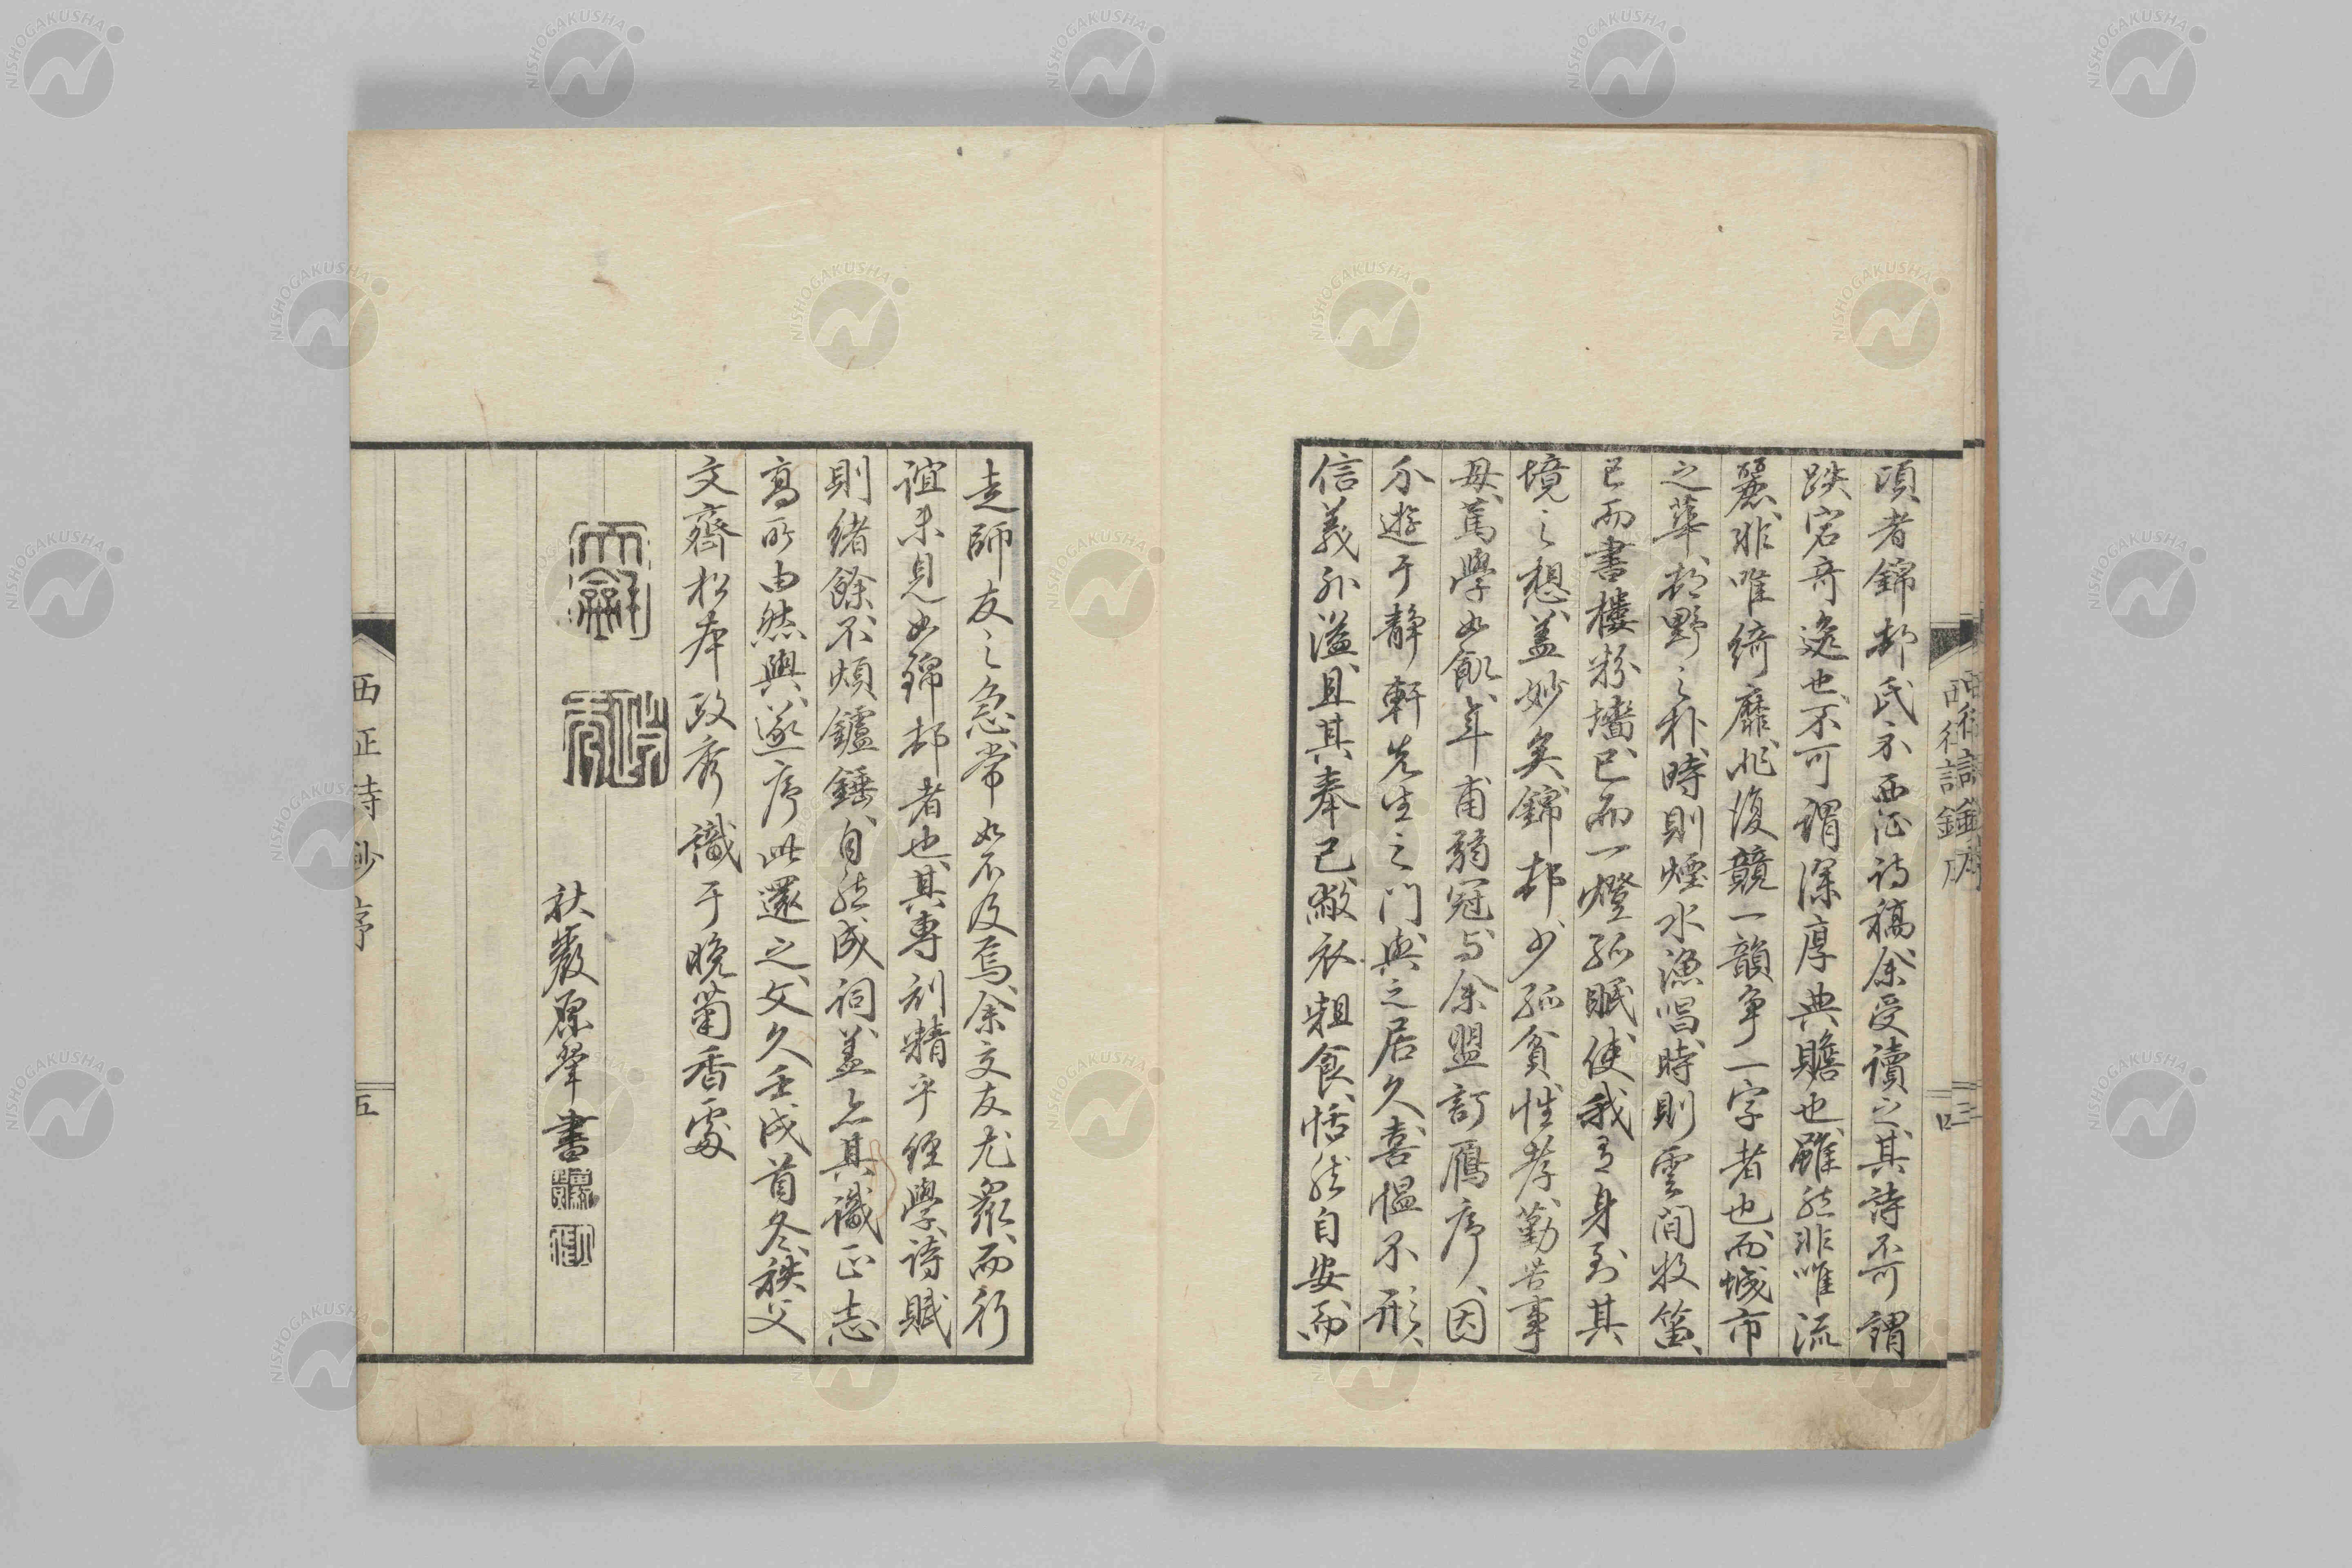 頃者錦邨氏示西征詩稿余受讀之其詩不可謂
跌宕奇逸也不可謂深厚典贍也雖然非唯流
麗非唯綺靡非復競一韻爭一字者也而城市
之華邨野之朴時則煙水漁唱時則雲間牧笛
已而書樓粉墻已而一燈孤眠使我有身到其
境之想蓋妙矣錦邨少孤貧性孝勤苦事
母篤學如飢年甫弱冠与余盟訂鴈序因
介遊于静軒先生之門與之居久喜慍不形
信義外溢且其奉己敝衣粗食恬然自安而
走師友之急常如不及焉余交友尤衆而行
誼未見如錦邨者也其專刻精乎經學詩賦
則緒餘不煩鑪錘自然成詞蓋亦其識正志
高所由然與遂序此還之文久壬戌首冬秩父
文齋松本政秀識于晩菊香處
秋巖原翬書
西征詩鈔序
五